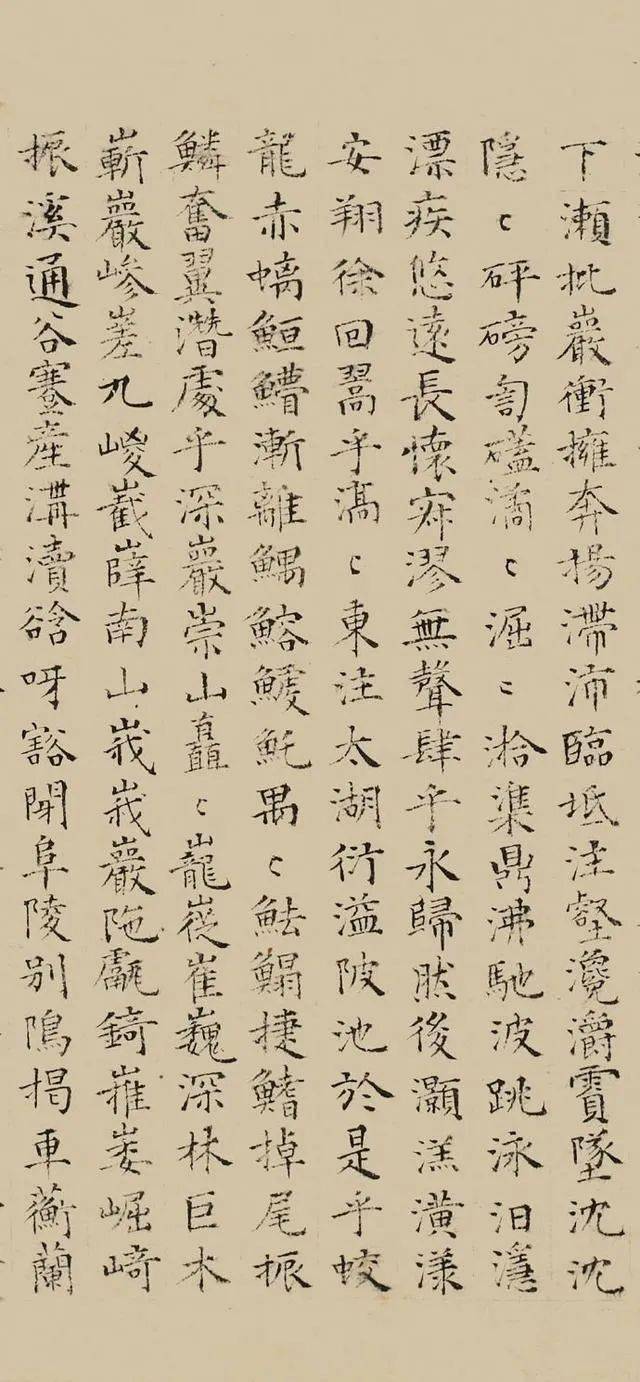 下瀨批巖衝擁奔揚滯沛臨坻注壑瀺灂霣墜沈沈
隱〻砰磅訇礚潏〻淈〻湁潗鼎沸馳波跳沫汩濦
漂疾悠遠長懷寂漻無聲肆乎永歸然後灝溔潢漾
安翔徐回翯乎滈〻東注太湖衍溢陂池於是乎蛟
龍赤螭䱎䲛漸離鰅鰫鰬魠禺〻魼鰨揵鰭掉尾振
鱗奮翼潛處乎深巖崇山矗〻巃嵸崔巍深林巨木
嶄巖嵾嵳九嵕嶻嶭南山峩峩巖陁甗錡嶊崣崛崎
振溪通谷蹇產溝瀆谽呀豁閜阜陵別隝揭車蘅蘭